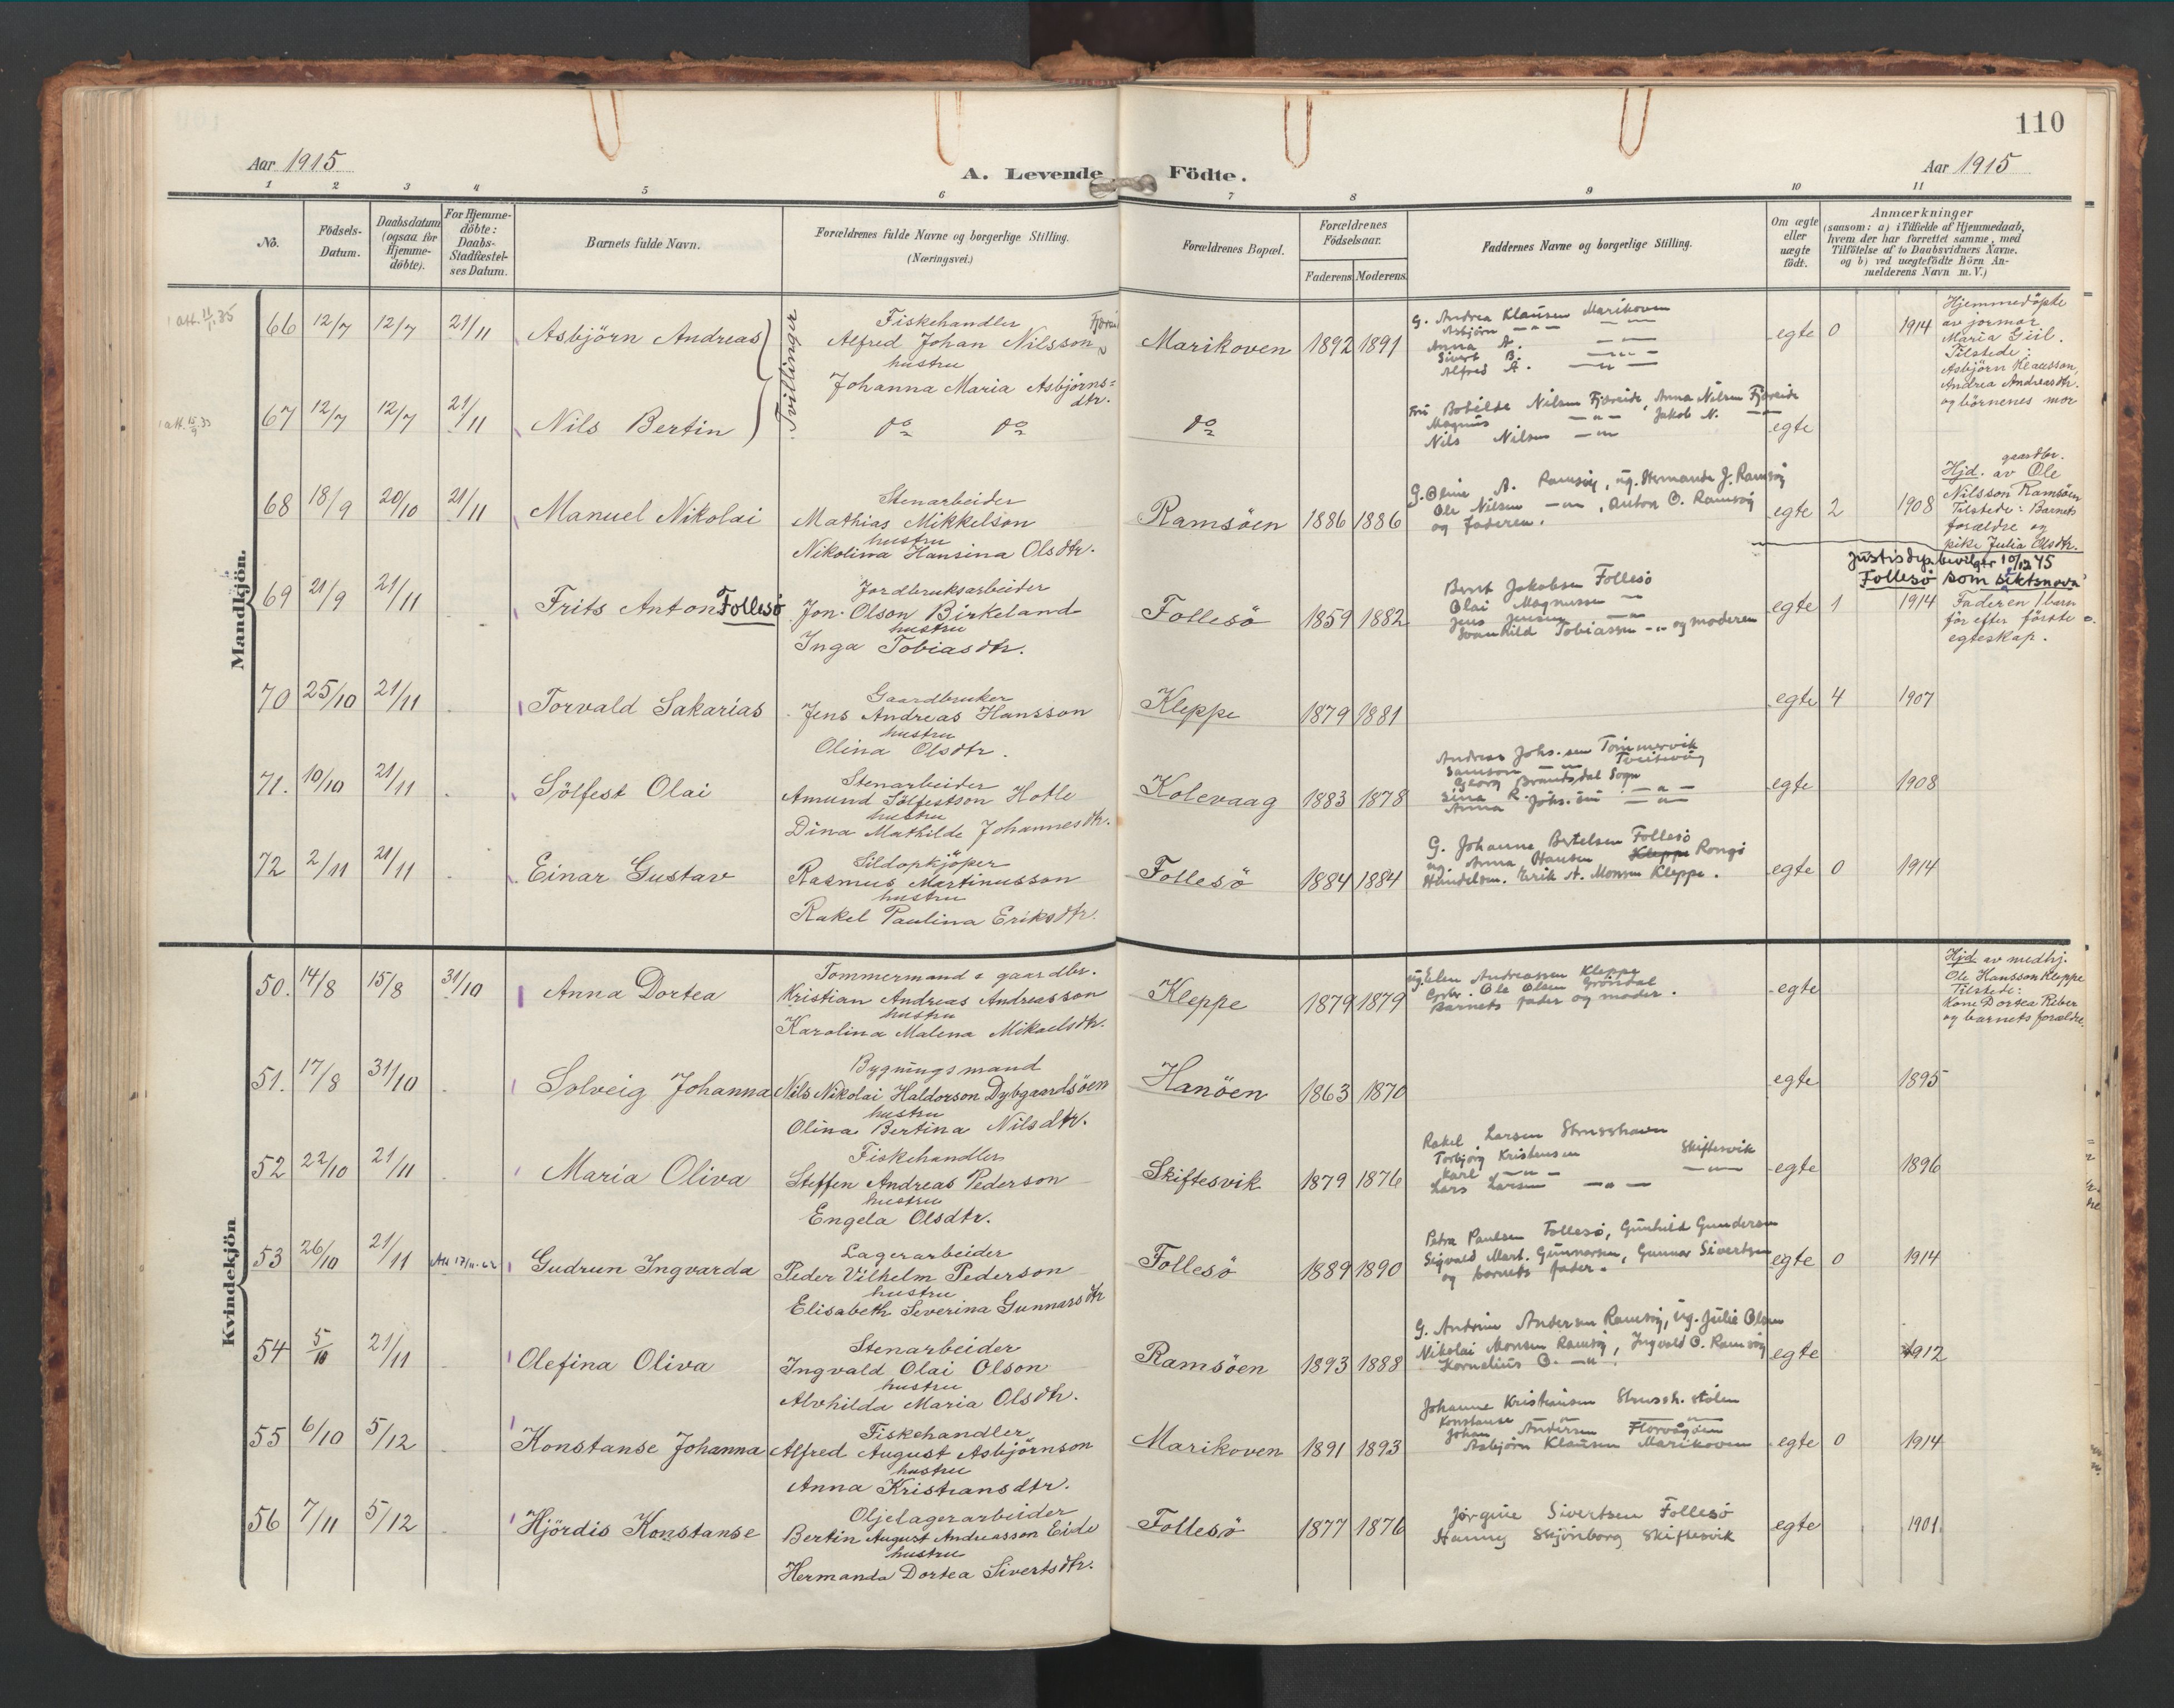 110
Aar 1915
A. Levende Födte.
Aar 1915
1 2 3 4 5 6 7 8 9 10 11
No.
Födsels-Datum.
Daabsdatum (ogsaa for Hjemme-döbte).
For Hjemme-döbte: Daabs-Stadfæstel-ses Datum.
Barnets fulde Navn.
Forældrenes fulde Navne og borgerlige Stilling.
(Næringsvei.)
Forældrenes Bopæl.
Forældrenes Födselsaar.
Faderens Moderens
Faddernes Navne og borgerlige Stilling.
Om ægte eller uægte födt.
Anmærkninger
(saasom: a) i Tilfælde af Hjemmedaab,
hvem der har forrettet samme, med
Tilföielse af to Daabsvidners Navne.
og b) ved uægtefödte Börn An-
melderens Navn m. V.)
Mandkjön.
66 12/7 12/7 21/11 Asbjörn Andreas
Tvillinger
Fiskehandler
Alfred Johan Nilsson
hustru
Johanna Maria Asbjörns=
dtr.
Marikoven 1892 1891
G. Andrea Klausen Marikoven
Asbjörn — " —
Anna A. — " —
Sivert B. — " —
Alfred A. — " —
egte 0 1914
Hjemmedöpte
av jormor
Maria Giil.
Tilstede:
Asbjörn Klausson,
Andrea Andreasdtr.
og börnenes mor
67 12/7 12/7 21/11 Nils Bertin
do do
do
Fru Botilde Nilsen Fjæreide, Anna Nilsen Fjæreide
Magnus — " — Jakob N. — " —
Nils Nilsen — " —
egte
68 18/9 20/10 21/11 Manuel Nikolai
Stenarbeider
Mathias Mikkelson
hustru
Nikolina Hansina Olsdtr.
Ramsöen 1886 1886
G. Oline A. Ramsöy, ug. Hermanda J. Ramsöy
Ole Nilsen — " —, Anton O. Ramsöy
og faderen.
egte 2 1908
gaardbr.
Hjd. av Ole
Nilsson Ramsöen
Tilstede: Barnets
forældre og
pike Julia Olsdtr.
Justisdep. bevilgtr 10/12 45
Follesö som slektsnavn
69 21/9 21/11 Frits Anton Follesö
Jordbruksarbeider
Jon Olson Birkeland
hustru
Inga Tobiasdtr.
Follesö 1859 1882
Bernt Jakobsen Follesö
Olai Magnussen — " —
Jens Jensen — " —
Svanhild Tobiassen — " — og moderen
egte 1 1914
Faderen 1 barn
för efter förste
egteskap.
70 25/10 21/11 Torvald Sakarias
Gaardbruker
Jens Andreas Hansson
hustru
Olina Olsdtr.
Kleppe 1879 1881
egte 4 1907
71. 10/10 21/11 Sölfest Olai
Stenarbeider
Amund Sölfestson Hotle
hustru
Dina Mathilde Johannesdtr.
Kolevaag 1883 1878
Andreas Johs.sen Tömmervik
Samson — " — Tveitevåg
Georg Brandsdal Sogn
Sina R. — " —
Anna Johs.sen — " —
egte 1908
72 2/11 21/11 Einar Gustav
Sildopkjöper
Rasmus Martinusson
hustru
Rakel Paulina Eriksdtr.
Follesö 1884 1884
G. Johanne Bertelsen Follesö
ug. Anna Hansen Kleppe Rongö
Handelsm. Erik A. Monsen Kleppe.
egte 0 1914
Kvindekjön
50. 14/8 15/8 31/10 Anna Dortea
Tommermand & gaardbr.
Kristian Andreas Andreasson
hustru
Karolina Malena Mikaelsdtr.
Kleppe 1879 1879
ug. Elen Andreassen Kleppe
Grbr. Ole Olsen Gröndal
Barnets fader og moder.
egte
Hjd. av medhj.
Ole Hansson Kleppe
Tilstede:
Kone Dortea Reber
og barnets forældre.
51. 17/8 31/10 Solveig Johanna
Bygningsmand
Nils Nikolai Haldorson Dybgaardsöen
hustru
Olina Bertina Nilsdtr.
Hanöen 1863 1870
egte 1895
52 22/10 21/11 Maria Oliva
Fiskehandler
Steffen Andreas Pederson
hustru
Engela Olsdtr.
Skiftesvik 1879 1876
Rakel Larsen Strusshavn
Torbjörg Kristensen Skiftesvik
Karl — " — — " —
Lars Larsen — " —
egte 1896
53 26/10 21/11 Att 17/11-62 Gudrun Ingvarda
Lagerarbeider
Peder Vilhelm Pederson
hustru
Elisabeth Severina Gunnarsdtr
Follesö 1889 1890
Petra Paulsen Follesö, Gunhild Gundersen
Sigvald Mart. Gunnarsen, Gunnar Sivertsen
og barnets fader.
egte 0 1914
54 5/10 21/11 Olefina Oliva
Stenarbeider
Ingvald Olai Olson
hustru
Alvhilda Maria Olsdtr.
Ramsöen 1893 1888
G. Andrine Andersen Ramsöy, ug. Julie Olsen
Nikolai Monsen Ramsöy, Ingvald O. Ramsöy
Kornelius O. — " —.
egte 1912
55 6/10 5/12 Konstanse Johanna
Fiskehandler
Alfred August Asbjörnson
hustru
Anna Kristiansdtr.
Marikoven 1891 1893
Johanne Kristiansen Strussh. stölen
Konstanse — " — — " —
Johan Andersen Florvågöen
Asbjörn Klausen Marikoven
egte 0 1914
56 7/11 5/12 Hjördis Konstanse
Oljelagerarbeider
Bertin August Andreasson Eide
hustru
Hermanda Dortea Sivertsdtr.
Follesö 1877 1876
Jörgine Sivertsen Follesö
Hanny Skjönborg Skiftesvik
egte 1901